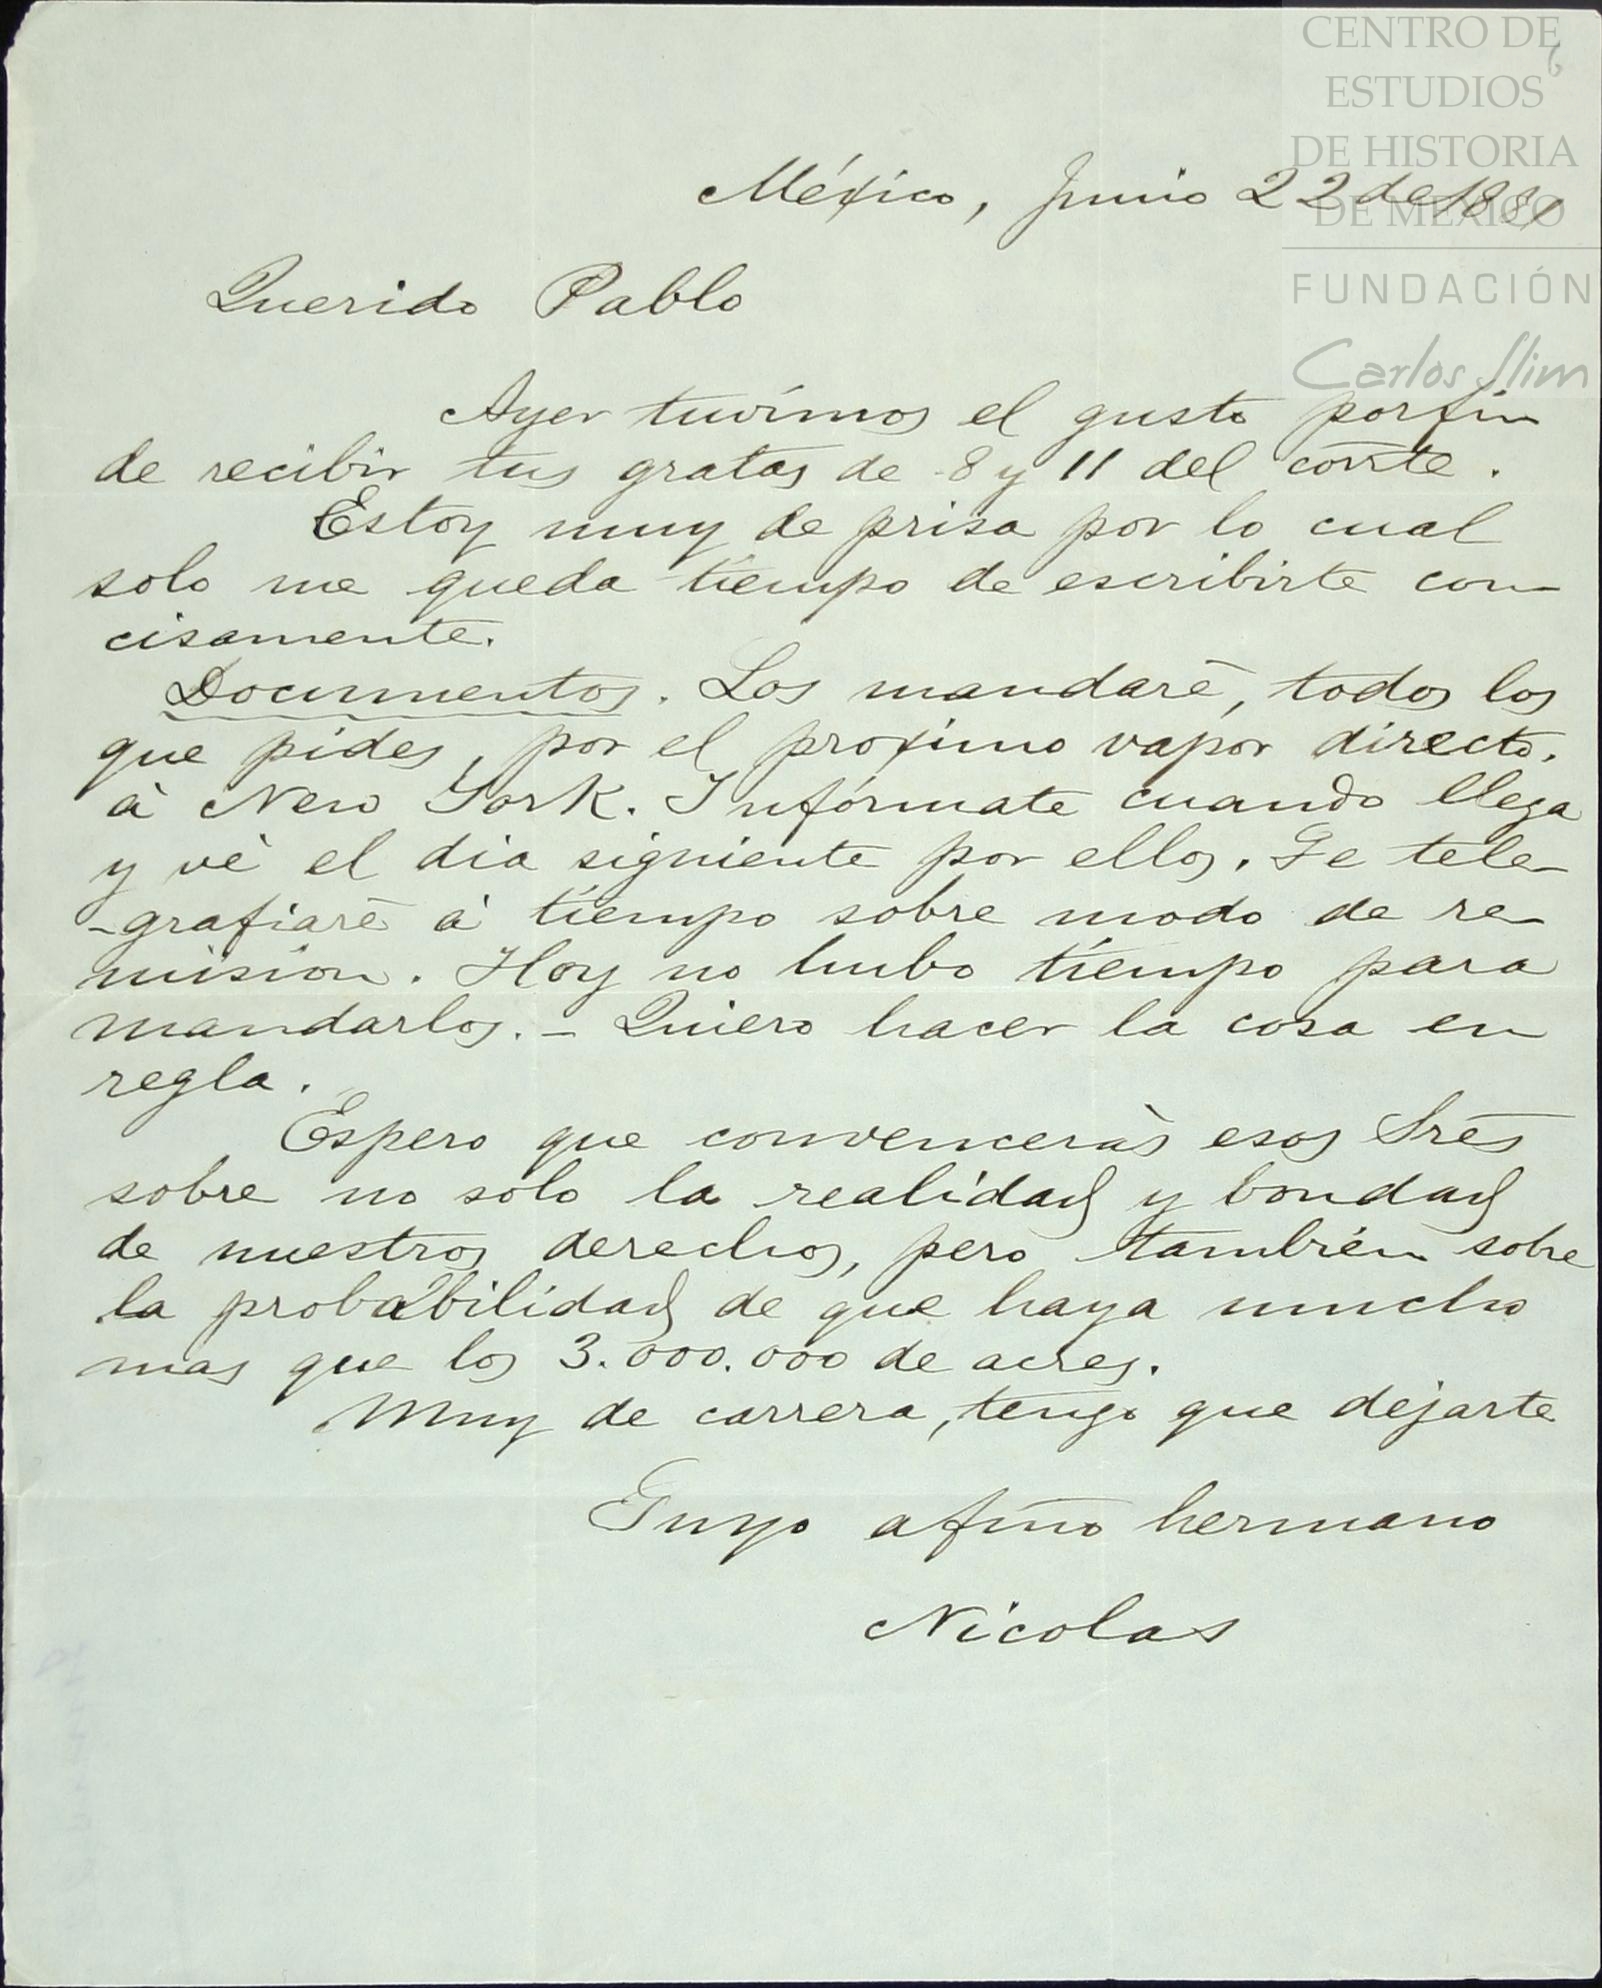 CENTRO DE
ESTUDIOS
DE HISTORIA
DE MÉXICO
FUNDACIÓN
Carlos Slim
6
México, Junio 22 de 1881
Querido Pablo
Ayer tuvímos el gusto porfin
de recibir tus gratas de 8 y 11 del corrte.
Estoy muy de prisa por lo cual
solo me queda tiempo de escribirte con-
cisamente.
Documentos. Los mandaré, todos los
que pides, por el proximo vapor directo.
á New York. Infórmate cuando llega
y vé el dia siguiente por ellos. Te tele-
-grafiaré á tiempo sobre modo de re-
mision. Hoy no hubo tiempo para
mandarlos. - Quiero hacer la cosa en
regla.
Espero que convencerás esos Sres
sobre no solo la realidad y bondad
de nuestros derechos, pero también sobre
la probabilidad de que haya mucho
mas que los 3.000.000 de acres.
Muy de carrera, tengo que dejarte
Tuyo afmo hermano
Nicolas